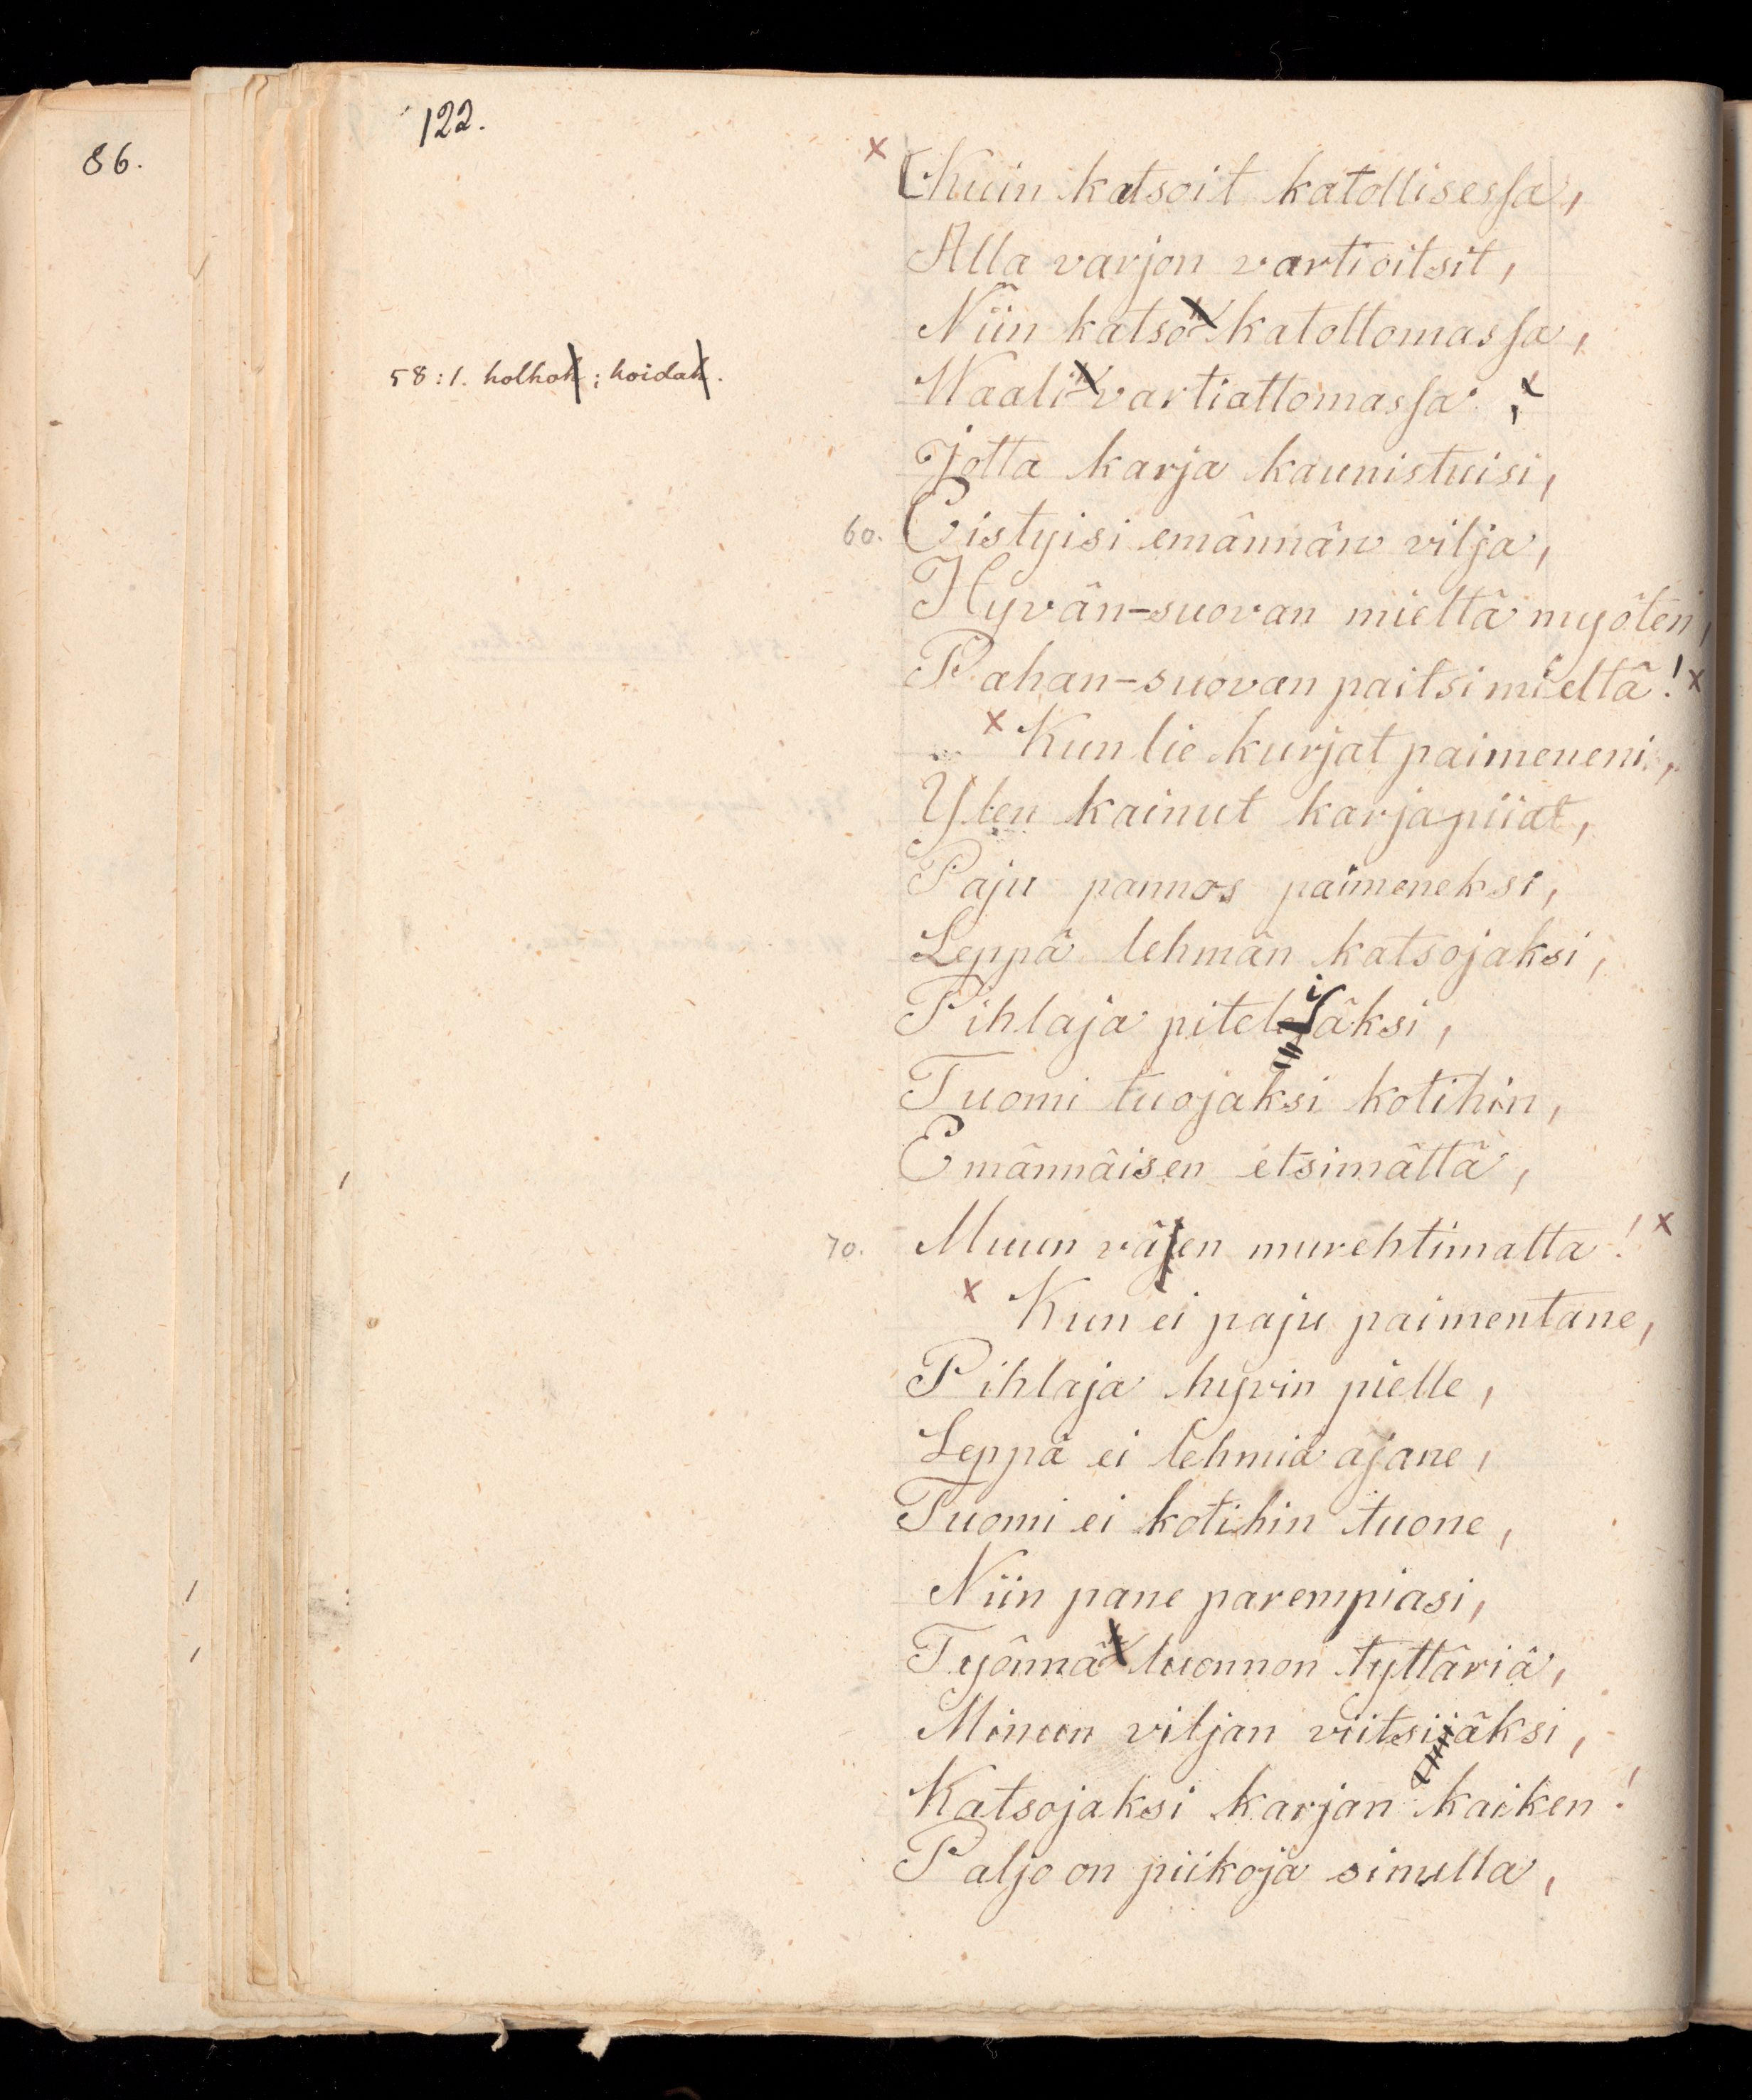 86.
122.
Kuin katsoit katollisessa,
Alla varjon vartioitsit,
Niin katso katottomassa,
58:1. holhok; hoidak.
Waali vartiattomassa;
Jotta karja kaunistuisi,
60. Eistyisi emännän vilja,
Hyvän-suovan mieltä myöten,
Pahan-suovan paitsi mieltä!
Kun lie kurjat paimeneni,
Ylen kainut karjapiiat,
Paju pannos paimeneksi,
Leppä lehmän katsojaksi,
Pihlaja pitelijäksi,
Tuomi tuojaksi kotihin,
Emännäisen etsimättä,
70. Muun väjen murehtimatta!
Kun ei paju paimentane,
Pihlaja hyvin pielle,
Leppä ei lehmiä ajane,
Tuomi ei kotihin tuone,
Niin pane parempiasi,
Työnnä luonnon tyttäriä,
Minun viljan viitsijäksi,
Katsojaksi karjan kaiken!
Paljo on piikoja sinulla,